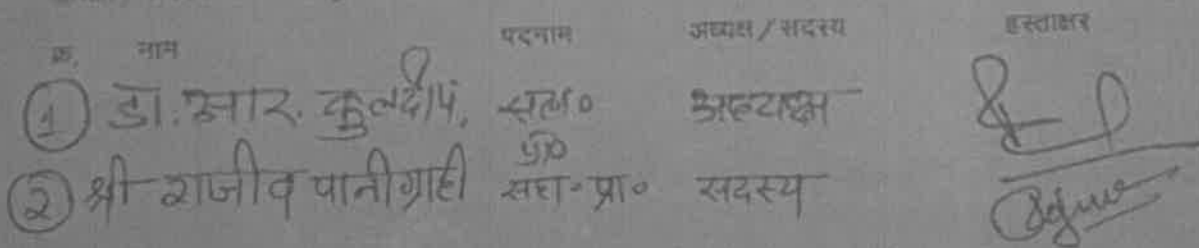 क्र. नाम पदनाम अध्यक्ष / सदस्य हस्ताक्षर
① डा. आर. कुलदीप, सहा० प्रा० अध्यक्ष
② श्री राजीव पानीग्राही सहा० प्रा० सदस्य